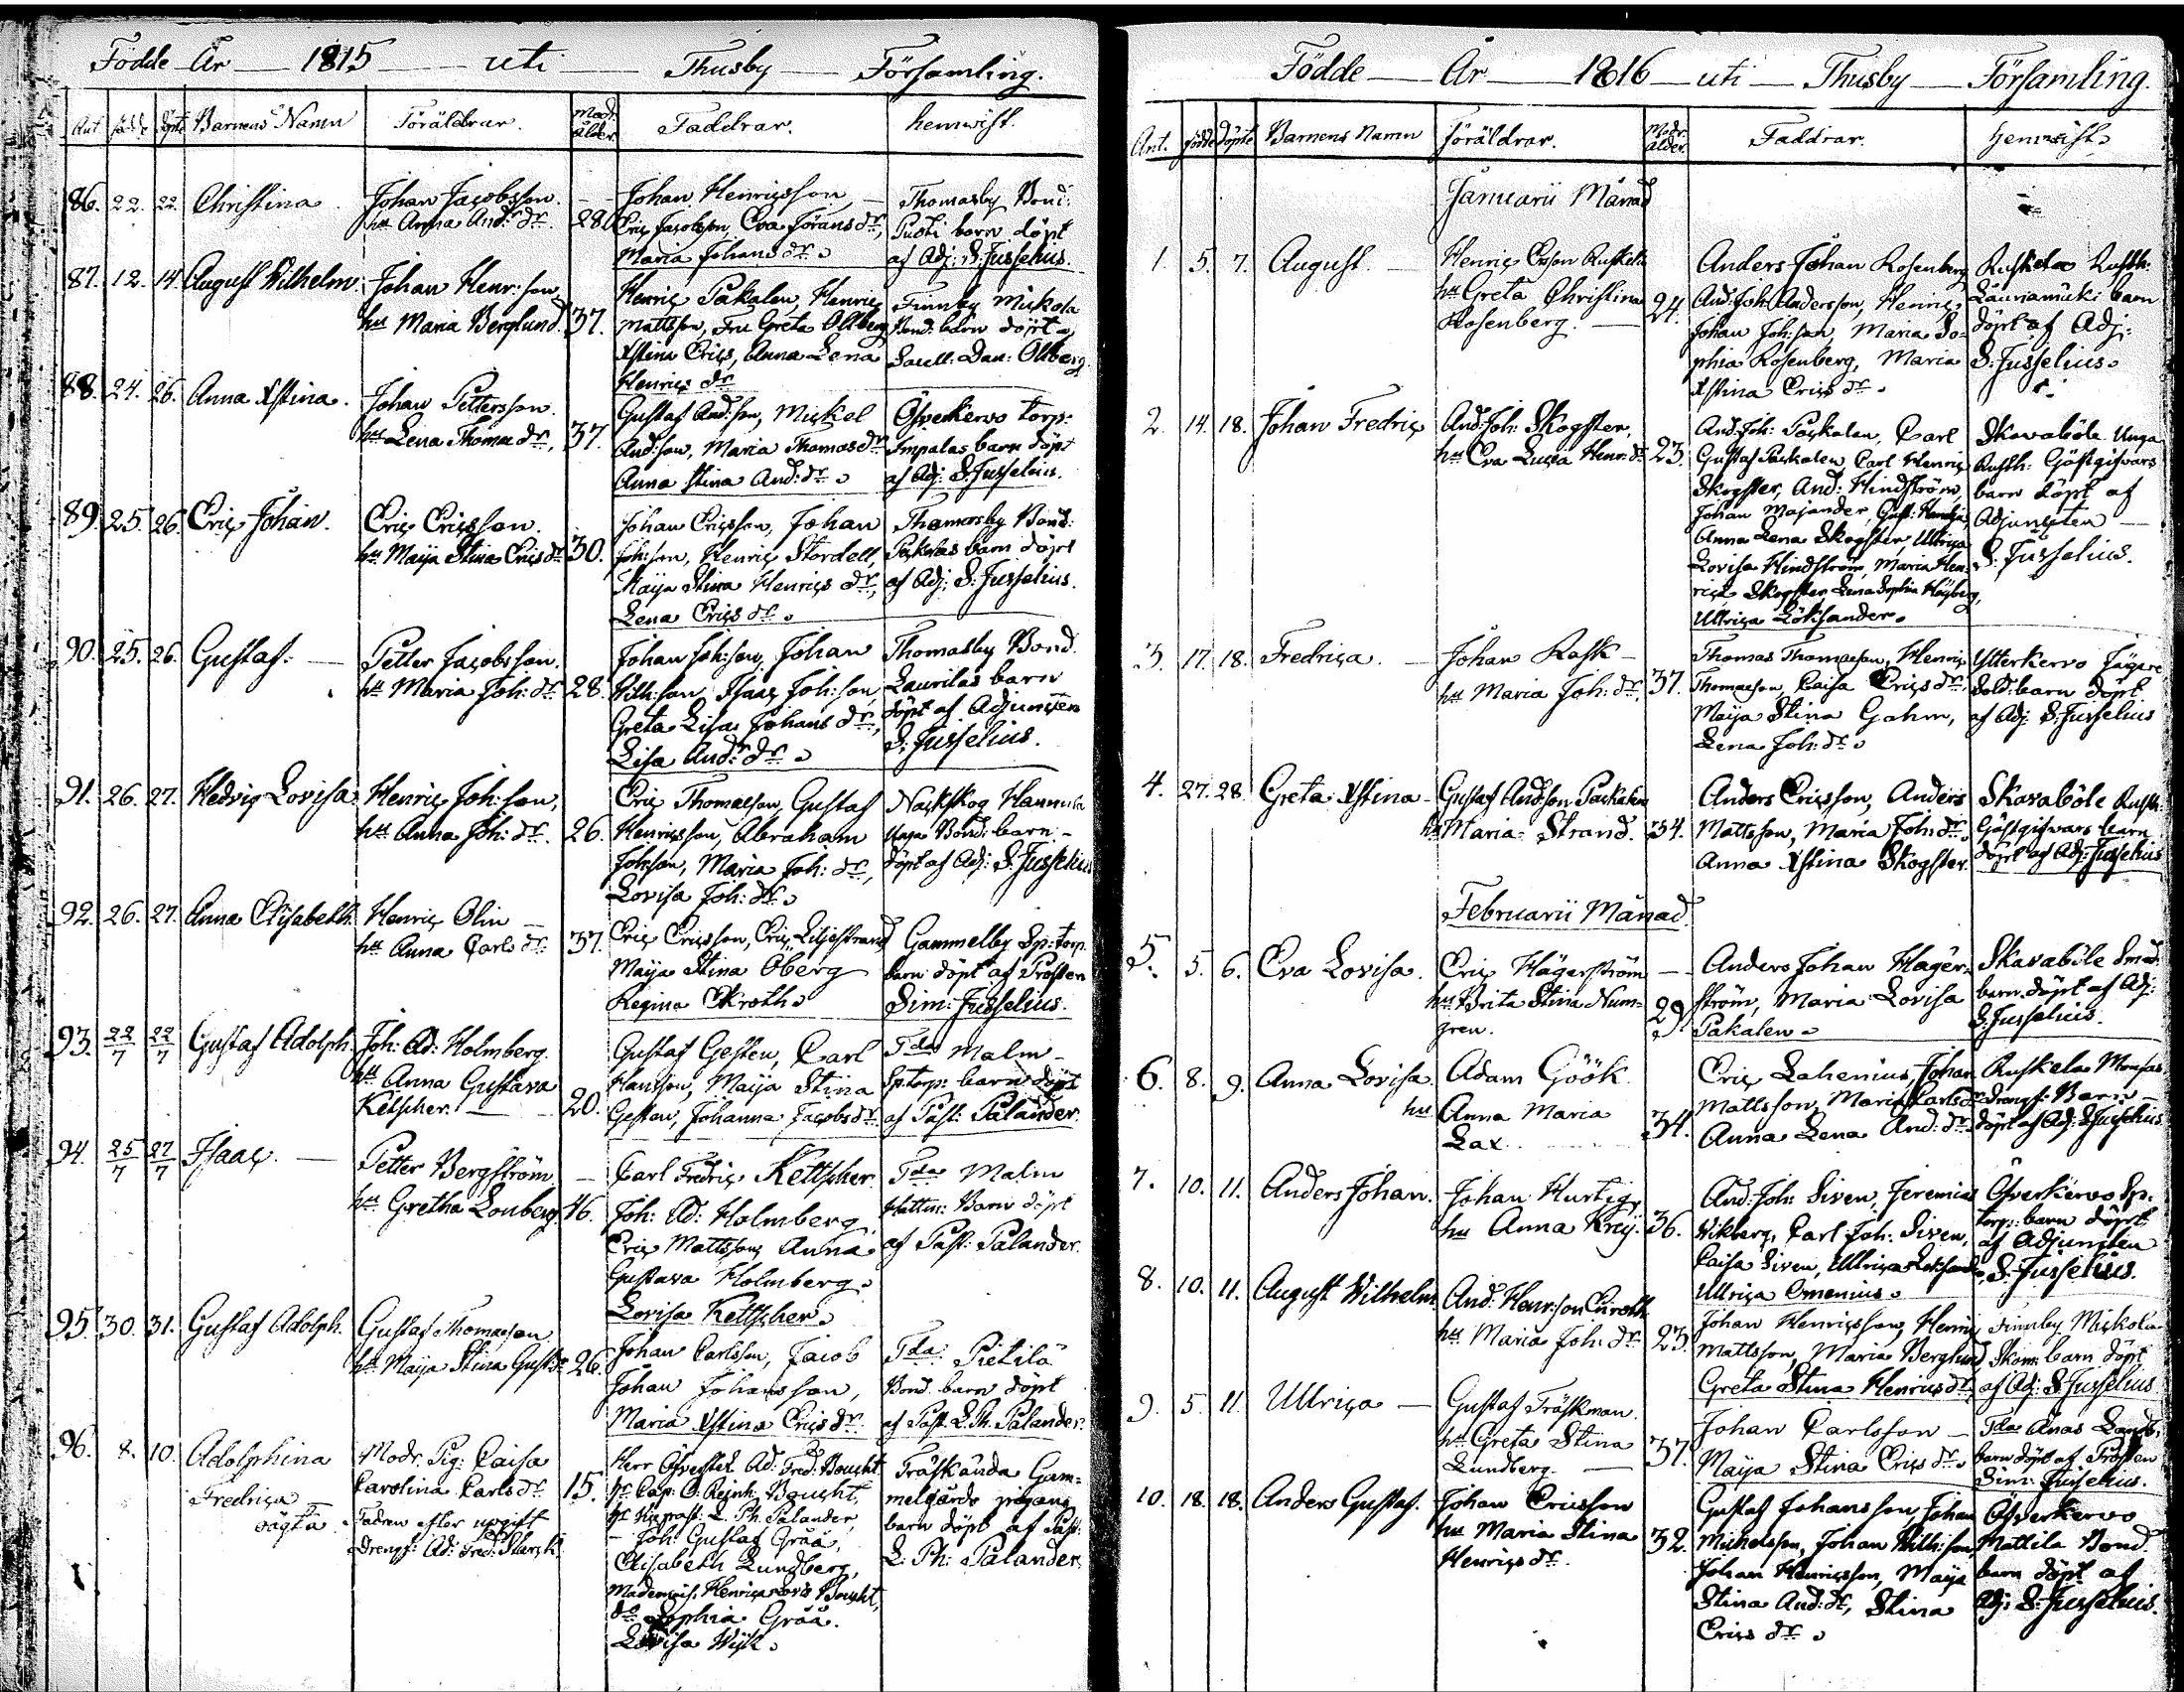 Födde År 1815 uti Thusby Församling.
Ant födde döpte Barnens Namn Föräldrar. Mod. ålder. Faddrar. hemvist.
86. 22. 22. Christina. Johan Jacobsson. 28. Johan Henricsson, Thomasby Bond:
hu Anna And: dr. Eric Jacobsson, Eva Jörans dr, barn döpt
Maria Johans dr. af Adj: S. Jusselius.
87. 12. 14. August Wilhelm Johan Henr: son, Henric Pakalen, Henric Finnby Mickola
hu Maria Berglund. 37. Mattsson, Fru Greta Ollberg Bond: barn döpt af
Xstina Erics, Anna Lena Dan: Ollberg
Henrics dr
88. 24. 26. Anna Xstina. Johan Pettersson. Gustaf And: son, Mickel Öfverkervo torp:
hu Lena Thomæ dr, 37. And: son, Maria Thomas dr Impalas barn döpt
Anna Stina And: dr. af Adj: S. Jusselius.
89. 25. 26. Eric Johan. Eric Ericsson. Johan Ericsson, Johan Thomasby Bond:
hu Maija Stina Erics dr 30. Joh: son, Henric Stordell, barn döpt
Maija Stina Henrics dr, af Adj: S: Jusselius.
Lena Erics dr.
90. 25. 26. Gustaf. Petter Jacobsson. Johan Joh: son, Johan Thomasby Bond.
hu Maria Joh: dr. 28. Wilh: son, Isaac Joh: son, Laurilas barn
Greta Lisa Johans dr, döpt af Adjuncten
Lisa And: dr. S: Jusselius.
91. 26. 27. Hedvig Lovisa Henric Joh: son, Eric Thomæson, Gustaf Nackskog Hannula
hu Anna Joh: dr. 26. Henricsson, Abraham Unga Bond: barn
Joh: son, Maria Joh: dr, döpt af Adj: S. Jusselius
Lovisa Joh: dr.
92. 26. 27. Anna Elisabeth. Henric Olin Eric Ericsson, Eric Liljestrand Gammelby Sp: torp.
hu Anna Carls dr. 37. Maija Stina Öberg barn döpt af Prosten
Regina Ekroth. Sim: Jusselius.
93. 22/7 22/7 Gustaf Adolph. Joh: Ad: Holmberg. Gustaf Gesten, Carl Malm
hu Anna Gustava Hansson, Maija Stina Sp: torp: barn döpt
Ketscher. 20. Gesten, Johanna Jacobs dr. af Past: Palander.
94. 25/7 27/7 Isaac. Petter Bergström Carl Fredric Kettscher Malm
hu Gretha Lonberg 46. Joh: Ad: Holmberg, Barn döpt
Eric Mattsson, Anna af Past: Palander.
Gustava Holmberg.
Lovisa Kettscher.
95. 30. 31. Gustaf Adolph. Gustaf Thomæson Johan Carlsson, Jacob Pietilä
hu Maija Stina Gust dr 26. Johan Johansson, Bond. barn döpt
Maria Xstina Erics dr. af Past. L. Ph. Palander.
96. 8. 10. Adolphina Modr. Pig: Caisa Herr Öfverstel. Ad: Fred: Boucht Träskända Gam-
Fredrica Carolina Carls dr 15. hr Cap: C. Reinh: Boucht, melgårds pigans
oägta Fadren efter upgift L. Ph. Palander, barn döpt af Past:
Drengs: Ad: Fred: Starck. Joh: Gustaf Gråå, L: Ph: Palander.
Elisabeth Lundberg,
Henrica Lovis Boucht,
do Sophia Gråå.
Lovisa Wijk.
Födde År 1816 uti Thusby Församling.
Ant. födde döpte Barnens Namn Föräldrar. Modr. ålder. Faddrar. hemvist.
Januarii Månad
1. 5. 7. August. Henric Ericson Ruskela Anders Johan Rosenberg Ruskela Rusth:
hu Greta Christina 24. And: Joh: Andersson, Henric barn
Rosenberg. Johan Joh: son, Maria So- döpt af Adj:
phia Rosenberg, Maria S: Jusselius.
Xstina Erics dr.
2. 14. 18. Johan Fredric And: Joh: Skogster, And: Joh: Packalen, Carl Skavaböle Unga
hu Eva Lucia Henr: dr 23. Gustaf Packalen, Carl Henric Rusth: Gästgifvars
Skogster, And: Hindström, barn döpt af
Johan Majander, Adjuncten
Anna Lena Skogster, Ullrica S: Jusselius.
Lovisa Hindström, Maria Hen-
rica Skogster, Lena Sophia Högberg,
Ullrica Löksander.
3. 17. 18. Fredrica. Johan Rask Thomas Thomæson, Henric Ytterkervo Jägare
hu Maria Joh: dr. 37. Thomæson, Caisa Erics dr, Sold: barn döpt
Maija Stina Gahm, af Adj: S: Jusselius
Lena Joh: dr.
4. 27. 28. Greta Xstina Gustaf And: son Packalen Anders Ericsson, Anders Skavaböle Rusth:
hu Maria Strand. 34. Mattsson, Maria Joh: dr. Gästgifvars barn
Anna Xstina Skogster. döpt af Adj: Jusselius
Februarii Månad.
5. 5. 6. Eva Lovisa. Eric Hägerström Anders Johan Häger- Skavaböle Smed:
hu Brita Stina Num- 29 ström, Maria Lovisa barn döpt af Adj:
gren. Pakalen. S. Jusselius.
6. 8. 9. Anna Lovisa. Adam Göök. Eric Lahenius, Johan Ruskela
hu Anna Maria Mattsson, Maria Carls dr Drengs: Barn
Lax. 34. Anna Lena And: dr. döpt af Adj: S. Jusselius
7. 10. 11. Anders Johan. Johan Hurtig, And: Joh: Siven, Jeremias Öfverkervo Sp:
hu Anna Kreij. 36. Wikberg, Carl Joh: Siven, torp: barn döpt
Caisa Siven, Ullrica Löksander, af Adjuncten
Ullrica Omenius. S: Jusselius.
8. 10. 11. August Wilhelm And: Henr: son Ekroth Johan Henricsson, Henric Finnby Mickola
hu Maria Joh: dr. 23. Mattsson, Maria Berglund, Skom: barn döpt
Greta Stina Henrics dr. af Adj: S. Jusselius
9. 5. 11. Ullrica Gustaf Träskman. Johan Carlsson Anas
hu Greta Stina 37. Maija Stina Erics dr. barn döpt af Prosten
Lundberg. Sim: Jusselius.
10. 18. 18. Anders Gustaf. Johan Ericsson Gustaf Johansson, Johan Öfverkervo
hu Maria Stina 32. Michelsson, Johan Wilh: son, Mattila Bond.
Henrics dr. Johan Henricsson, Maija barn döpt af
Stina And: dr, Stina Adj: S: Jusselius.
Erics dr.